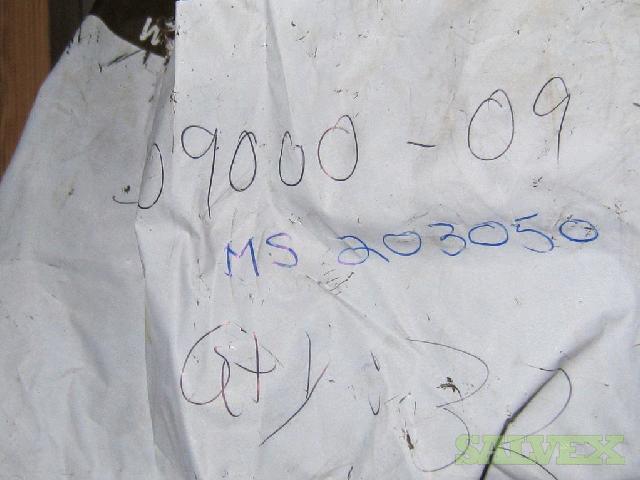 09000 - 09
MS 203050
Qty : 32
SALVEX